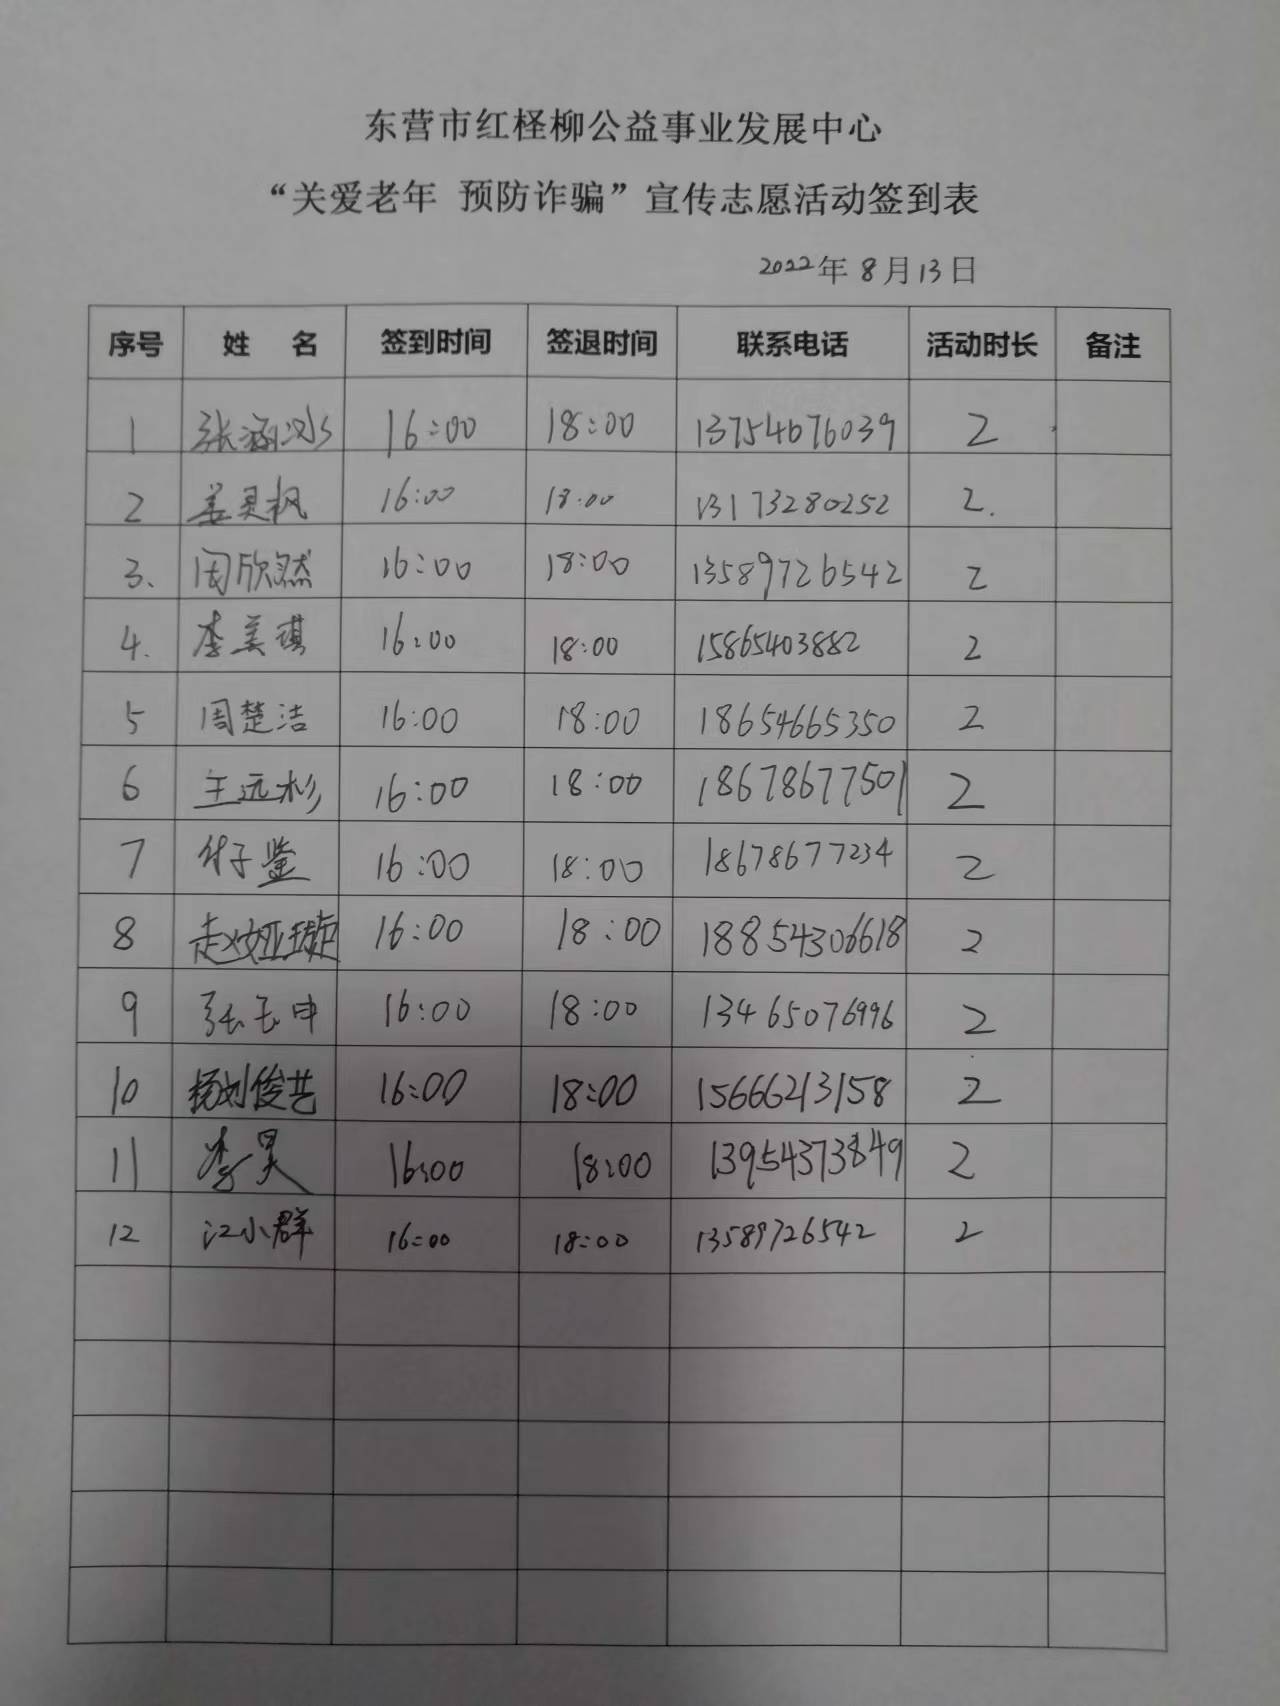 东营市红柽柳公益事业发展中心
“关爱老年 预防诈骗”宣传志愿活动签到表
2022年8月13日
序号 姓 名 签到时间 签退时间 联系电话 活动时长 备注
1 张涵冰 16:00 18:00 13754676039 2
2 姜灵枫 16:00 18:00 13173280252 2.
3. 周欣然 16:00 18:00 13589726542 2
4. 李美琪 16:00 18:00 15865403882 2
5 周楚洁 16:00 18:00 18654665350 2
6 王远杉 16:00 18:00 18678677501 2
7 16:00 18:00 18678677234 2
8 赵娅璇 16:00 18:00 18854306618 2
9 张玉申 16:00 18:00 13465076996 2
10 杨刘俊艺 16:00 18:00 15666213158 2
11 李昊 16:00 18:00 13954373849 2
12 江小群 16:00 18:00 13589726542 2